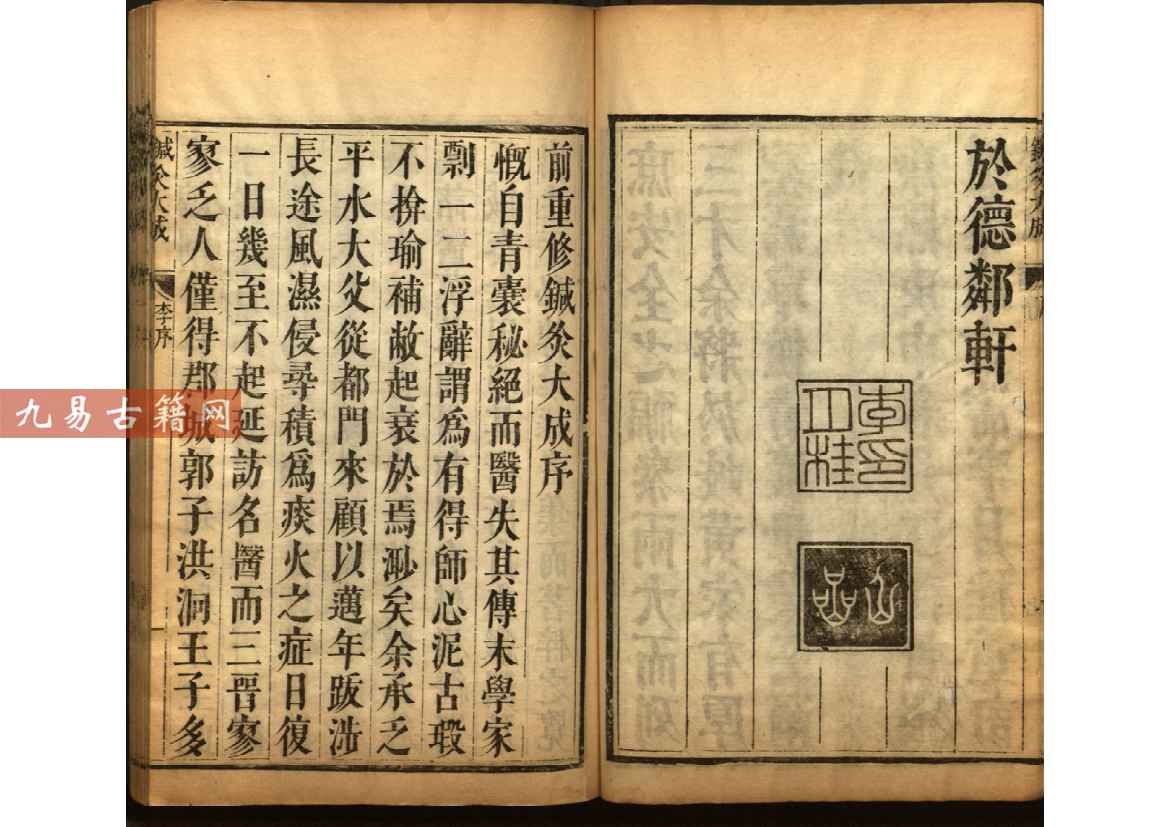 於德鄰軒
李印月桂
前重修鍼灸大成序
慨自青囊秘絕而醫失其傳末學家
剽一二浮辭謂爲有得師心泥古瑕
不揜瑜補敝起衰於焉渺矣余承乏
平水大父從都門來顧以邁年跋涉
長途風濕侵尋積爲痰火之症日復
一日幾至不起延訪名醫而三晉寥
寥乏人僅得郡城郭子洪洞王子多
鍼灸大成
李序
九易古籍网